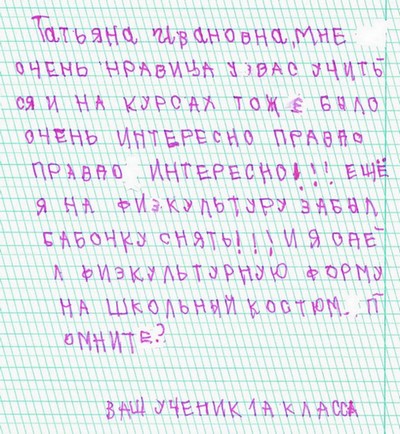 Татьяна Ивановна, МНЕ
ОЧЕНЬ НРАВИЦА У ВАС УЧИТЬ
СЯ И НА КУРСАХ ТОЖЕ БЫЛО
ОЧЕНЬ ИНТЕРЕСНО ПРАВАО
ПРАВАО ИНТЕРЕСНО!!! ЕЩЁ
Я НА ФИЗКУЛЬТУРУ ЗАБЫЛ
БАБОЧКУ СНЯТЬ!!! И Я ОДЕ
Л ФИЗКУЛЬТУРНУЮ ФОРМУ
НА ШКОЛЬНЫЙ КОСТЮМ. П
ОМНИТЕ?
ВАШ УЧЕНИК 1А КЛАССА